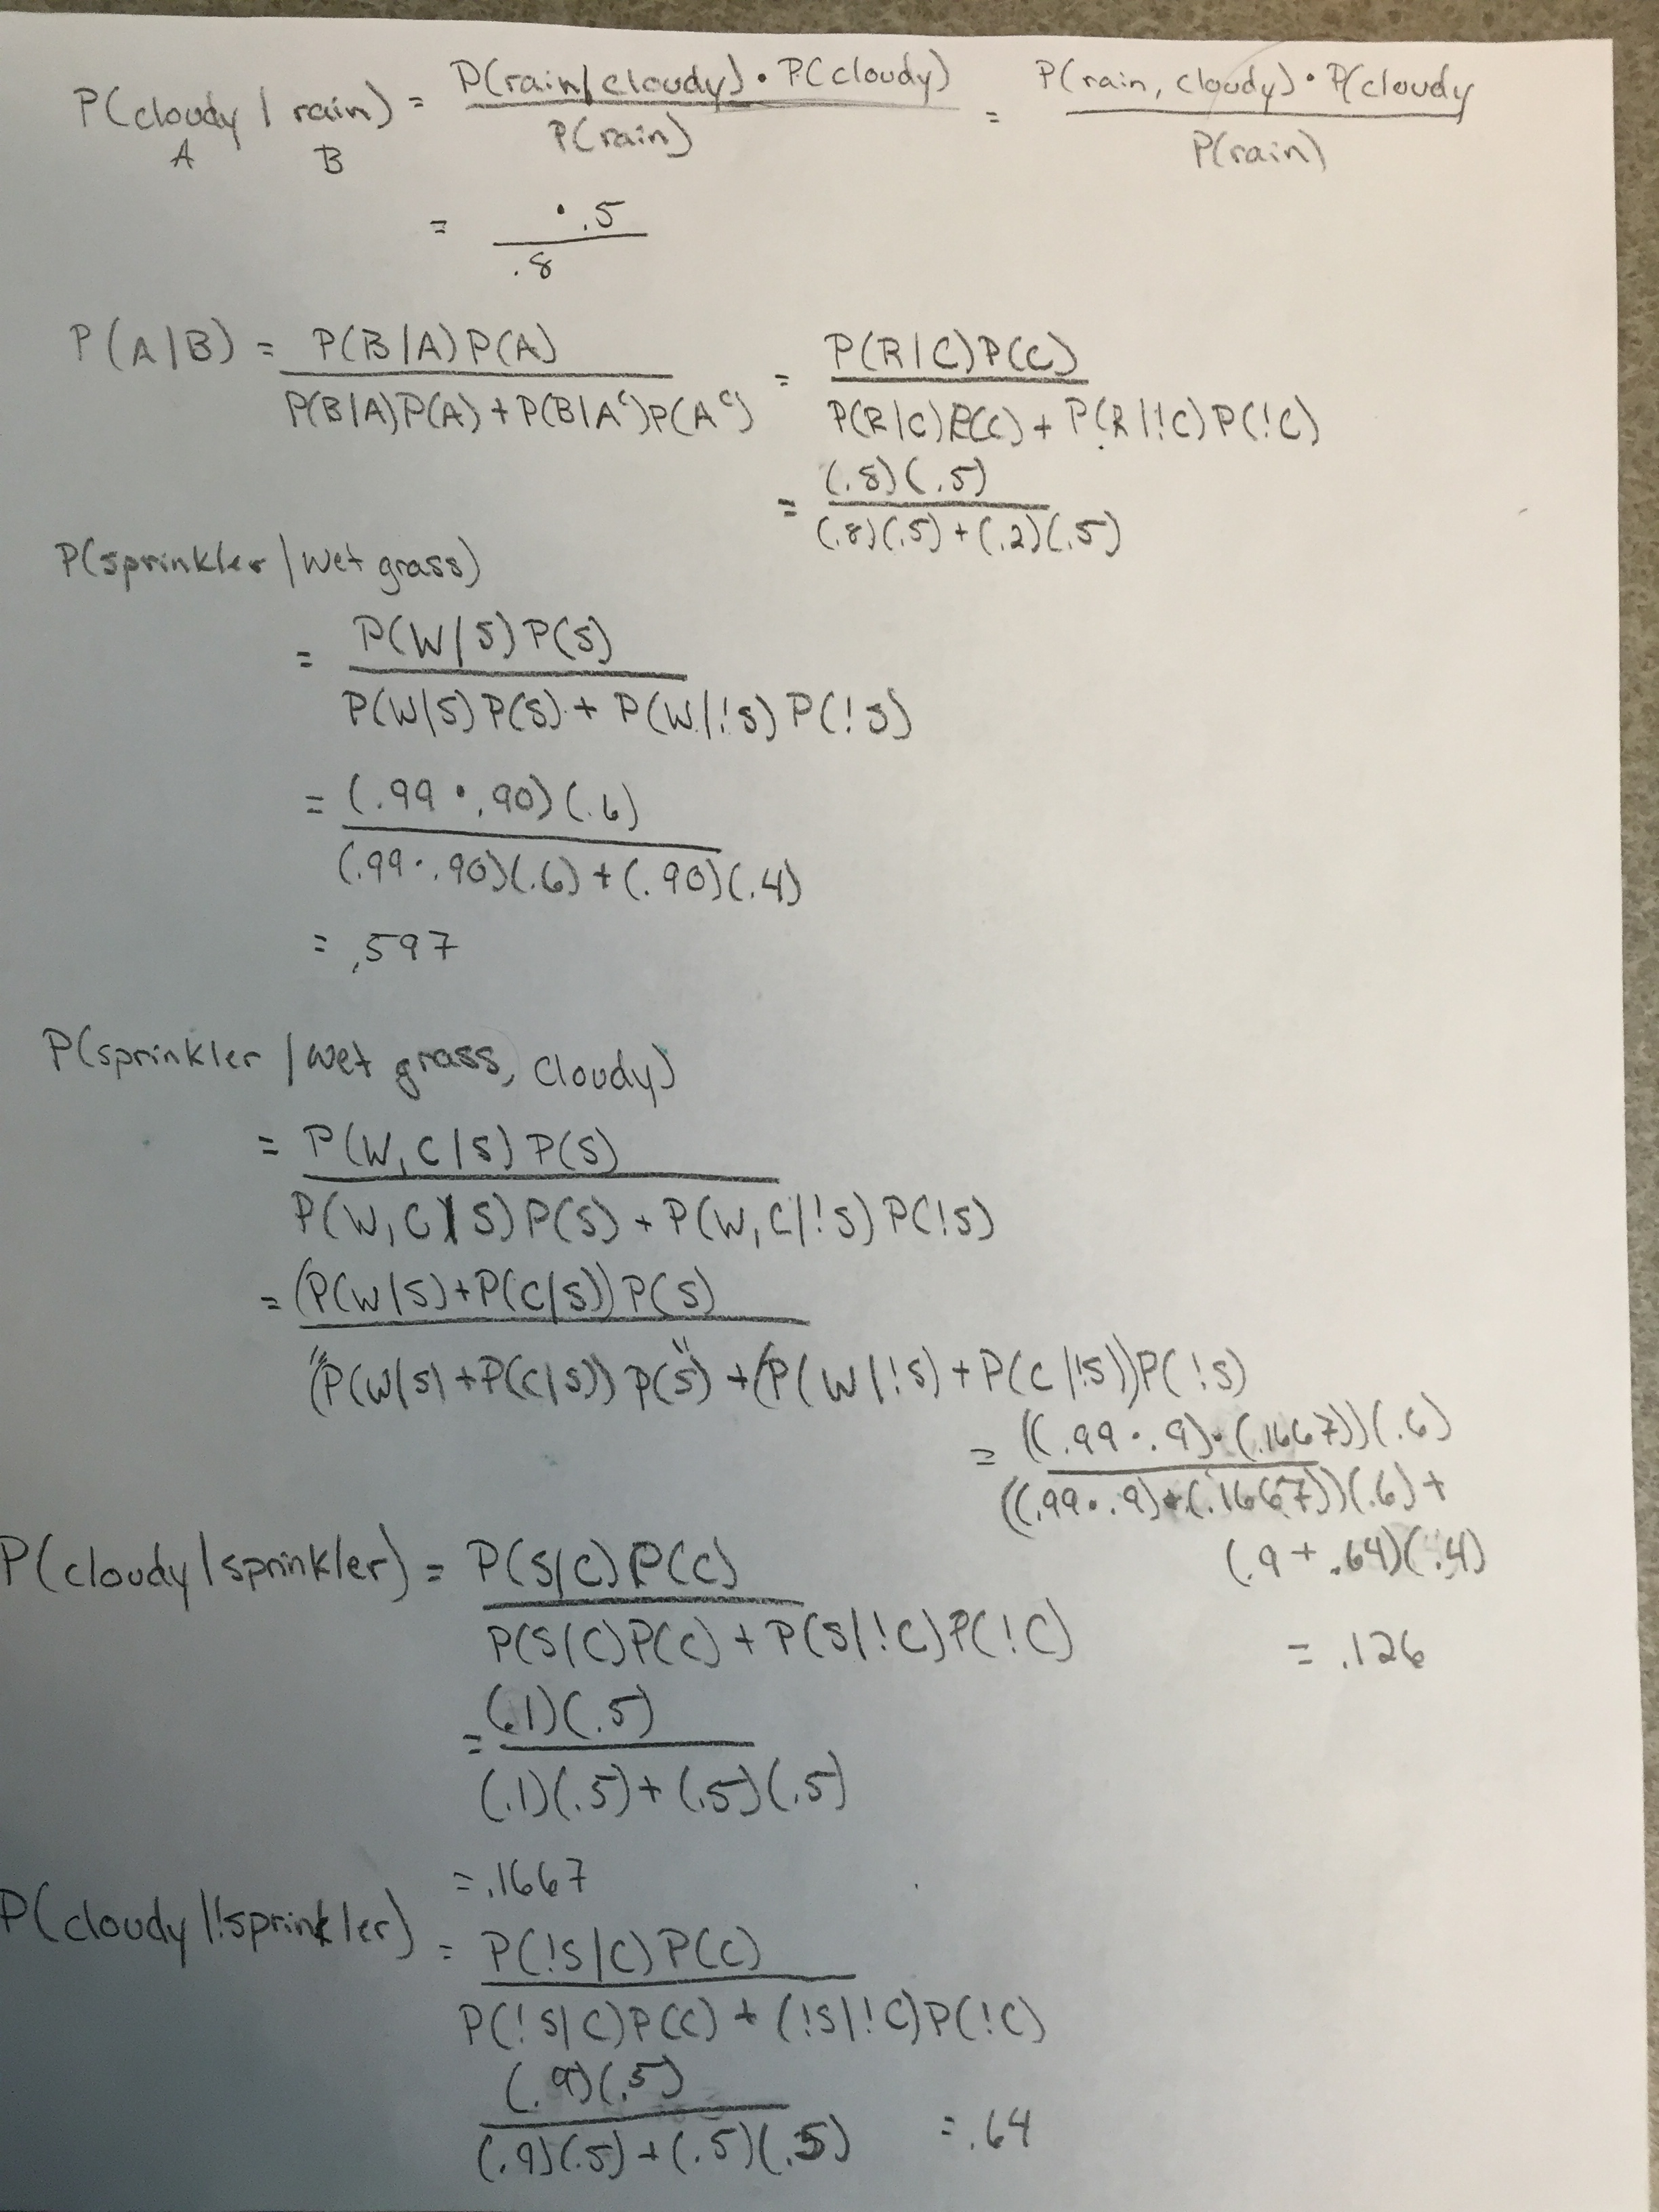 P(cloudy | rain) = P(rain/cloudy) • P(cloudy) / P(rain) = P(rain, cloudy) • P(cloudy / P(rain)
A B
= • .5 / .8
P(A|B) = P(B|A)P(A) / P(B|A)P(A) + P(B|Aᶜ)P(Aᶜ) = P(R|C)P(C) / P(R|C)P(C) + P(R|!C)P(!C)
= (.8)(.5) / (.8)(.5) + (.2)(.5)
P(sprinkler | wet grass)
= P(W|S)P(S) / P(W|S)P(S) + P(W|!S)P(!S)
= (.99 • .90)(.6) / (.99 • .90)(.6) + (.90)(.4)
= .597
P(sprinkler | wet grass, cloudy)
= P(W, C|S)P(S) / P(W, C|S)P(S) + P(W, C|!S)P(!S)
= (P(W|S) + P(C|S))P(S) / (P(W|S) + P(C|S))P(S) + (P(W|!S) + P(C|!S))P(!S)
= ((.99 • .9) • (.1667))(.6) / ((.99 • .9) • (.1667))(.6) +
(.9 + .64)(.4)
= .126
P(cloudy | sprinkler) = P(S|C)P(C) / P(S|C)P(C) + P(S|!C)P(!C)
= (.1)(.5) / (.1)(.5) + (.5)(.5)
= .1667
P(cloudy | !sprinkler) = P(!S|C)P(C) / P(!S|C)P(C) + (!S|!C)P(!C)
(.9)(.5) / (.9)(.5) + (.5)(.5) = .64